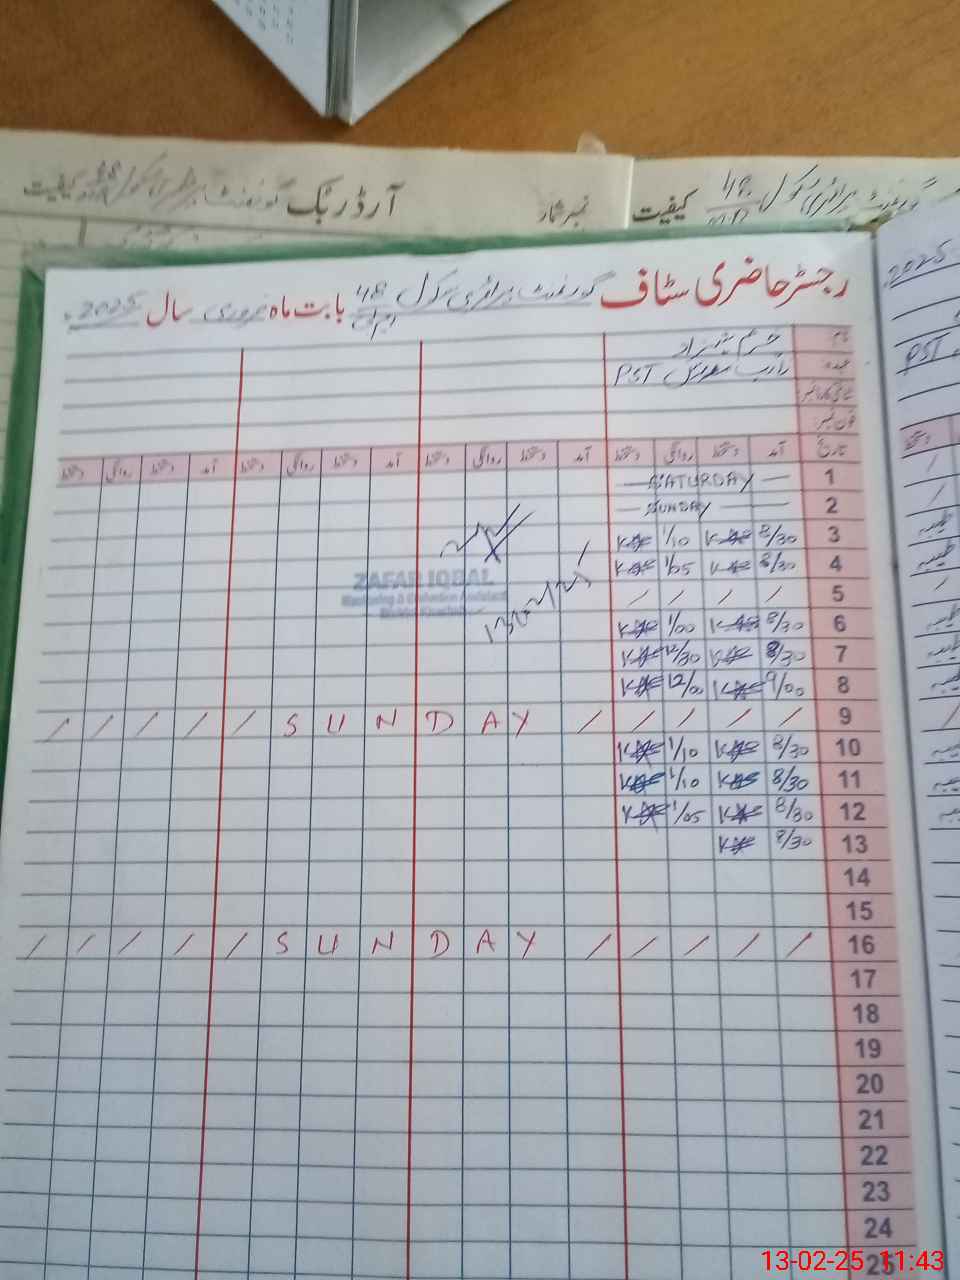 آرڈر بک گورنمنٹ پرائمری سکول 48 کیفیت
نمبر شمار
کیفیت
گورنمنٹ پرائمری سکول 48
رجسٹر حاضری سٹاف گورنمنٹ پرائمری سکول 48 بابت ماہ فروری سال 2025
2025
نام
عہدہ PST
PST
فون نمبر
تاریخ آمد دستخط روانگی دستخط آمد دستخط روانگی دستخط آمد دستخط روانگی دستخط آمد دستخط روانگی دستخط
1 — SATURDAY —
2 — SUNDAY —
3 8/30 1/10
4 8/30 1/05
5 / / / /
6 8/30 1/00
7 8/30 12/30
8 9/00 12/00
9 / / / / / S U N D A Y / / / / /
10 8/30 1/10
11 8/30 1/10
12 8/30 1/05
13 8/30
14
15
16 / / / / / S U N D A Y / / / / /
17
18
19
20
21
22
23
24
25
ZAFAR IQBAL
Monitoring & Evaluation Assistant
13-02-25 11:43